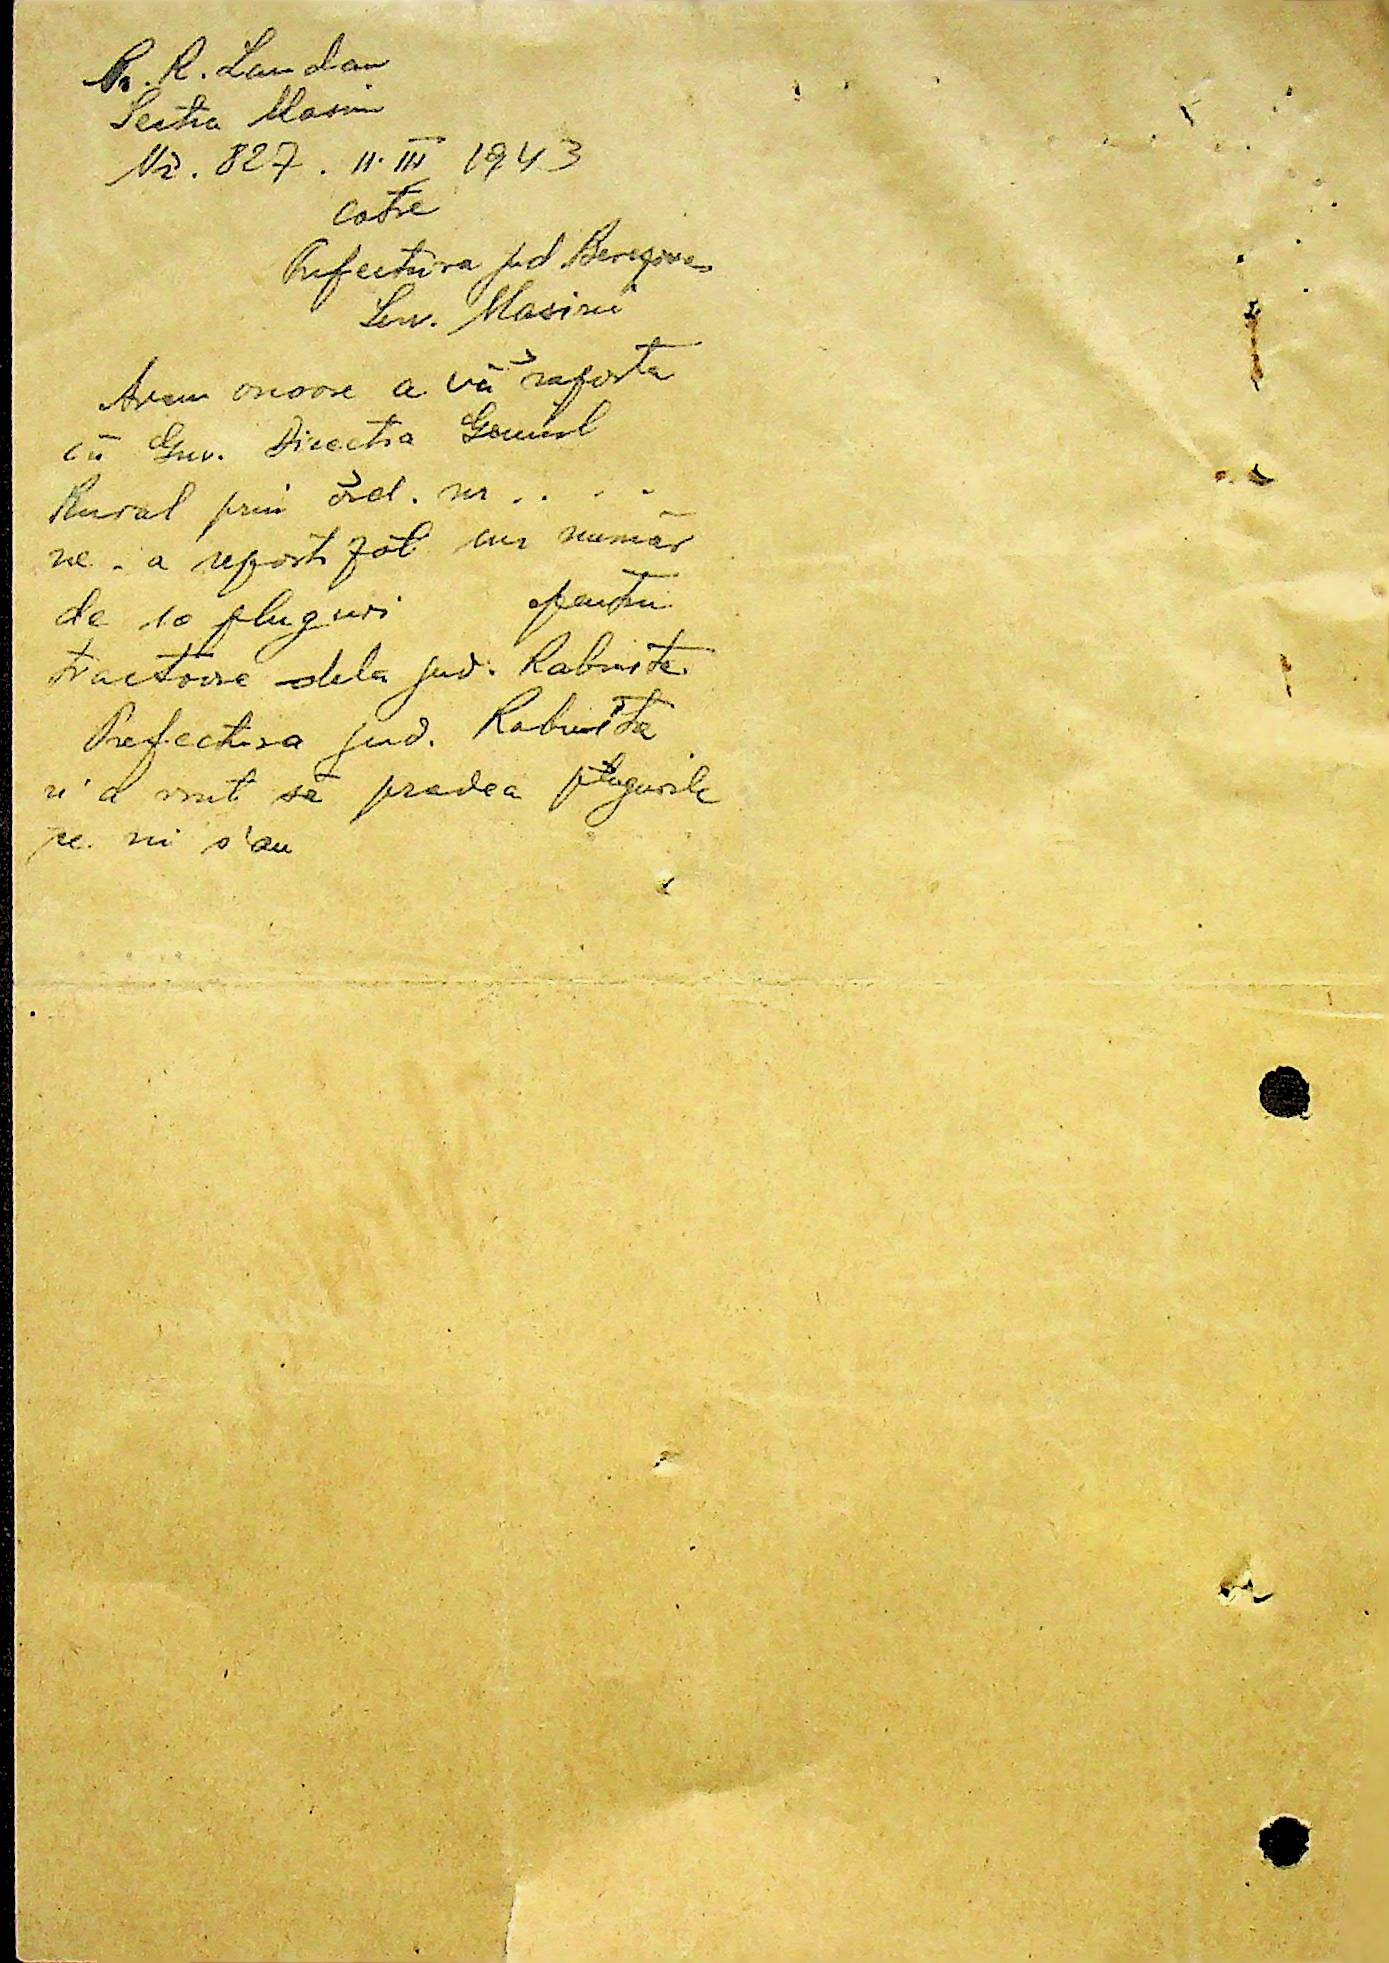 R. Landau
Sectia Masini
Nr. 827. 11. III 1943
catre
Prefectura jud Beregova
Serv. Masini
Avem onoare a vă raporta
că Guv. Directia Generol
Rural prin ord. nr . . . .
ne-a repartizat un număr
de 10 pluguri pentru
tractoare dela jud. Rabnita
Prefectura jud. Rabnita
n'a vrut să predea plugurile
pe ni s'au